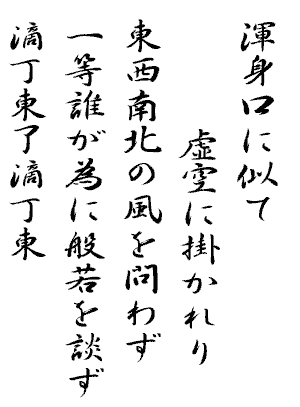 渾身口に似て
虚空に掛かれり
東西南北の風を問わず
一等誰が為に般若を談ず
滴丁東了滴丁東